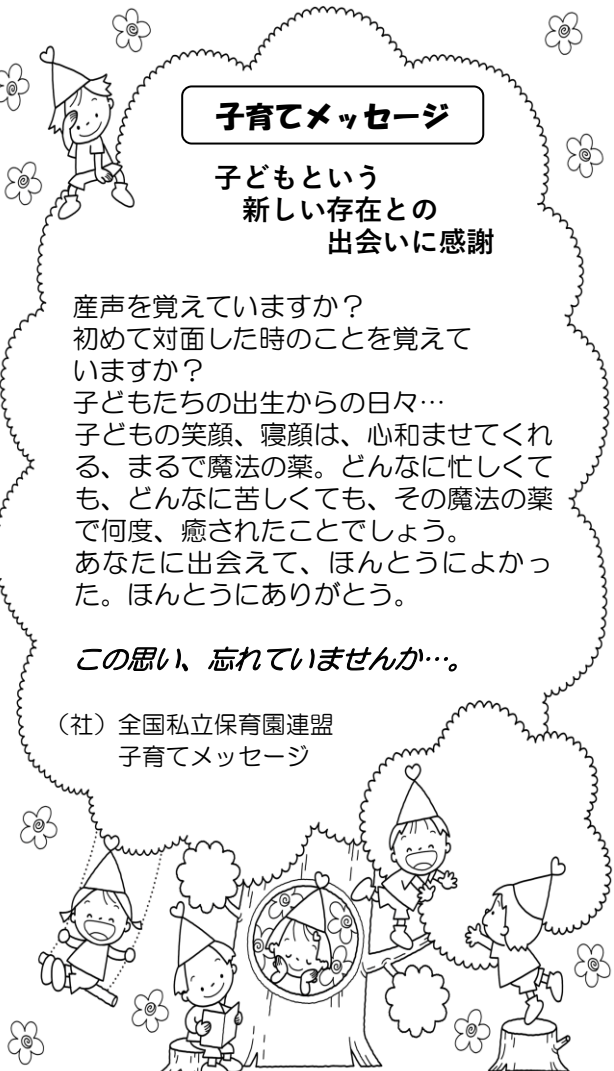 子育てメッセージ
子どもという
新しい存在との
出会いに感謝
産声を覚えていますか？
初めて対面した時のことを覚えて
いますか？
子どもたちの出生からの日々…
子どもの笑顔、寝顔は、心和ませてくれ
る、まるで魔法の薬。どんなに忙しくて
も、どんなに苦しくても、その魔法の薬
で何度、癒されたことでしょう。
あなたに出会えて、ほんとうによかっ
た。ほんとうにありがとう。
この思い、忘れていませんか…。
（社）全国私立保育園連盟
子育てメッセージ